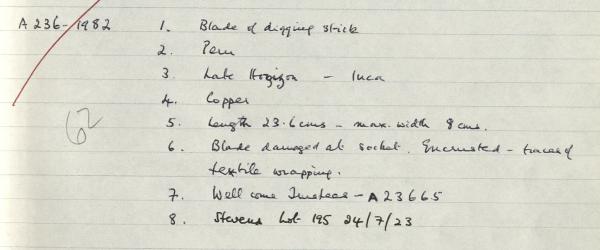 A 236-1982 1. Blade of digging stick
2. Peru
3. Late Horizon - Inca
4. Copper
5. Length 23.6 cms - max. width 8 cms.
6. Blade damaged at socket. Encrusted - traces of
textile wrapping.
7. Wellcome Trustees - A23665
8. Stevens Lot 195 24/7/23
62